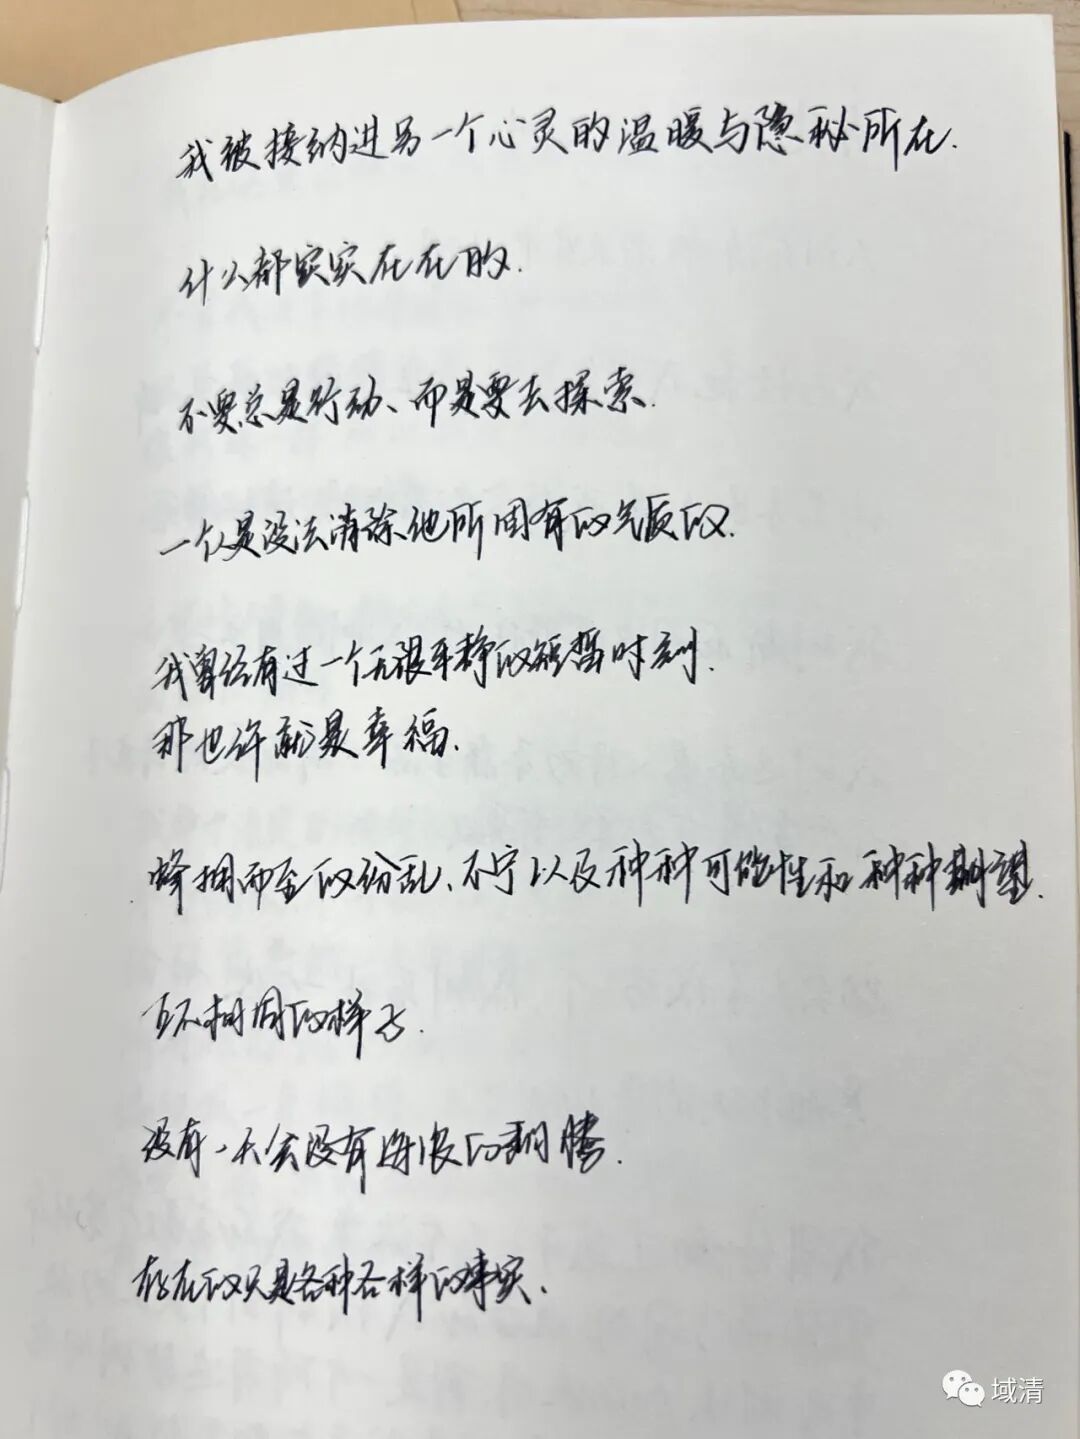 我被接纳进另一个心灵的温暖与隐秘所在.
什么都实实在在的.
不要总是行动、而是要去探索.
一个人是没法消除他所固有的气质的.
我曾经有过一个无限平静的短暂时刻.
那也许就是幸福.
蜂拥而至的纷乱、不宁以及种种可能性和种种期望.
互不相同的样子.
没有一天会没有海浪的翻腾.
存在的只是各种各样的事实.
域清